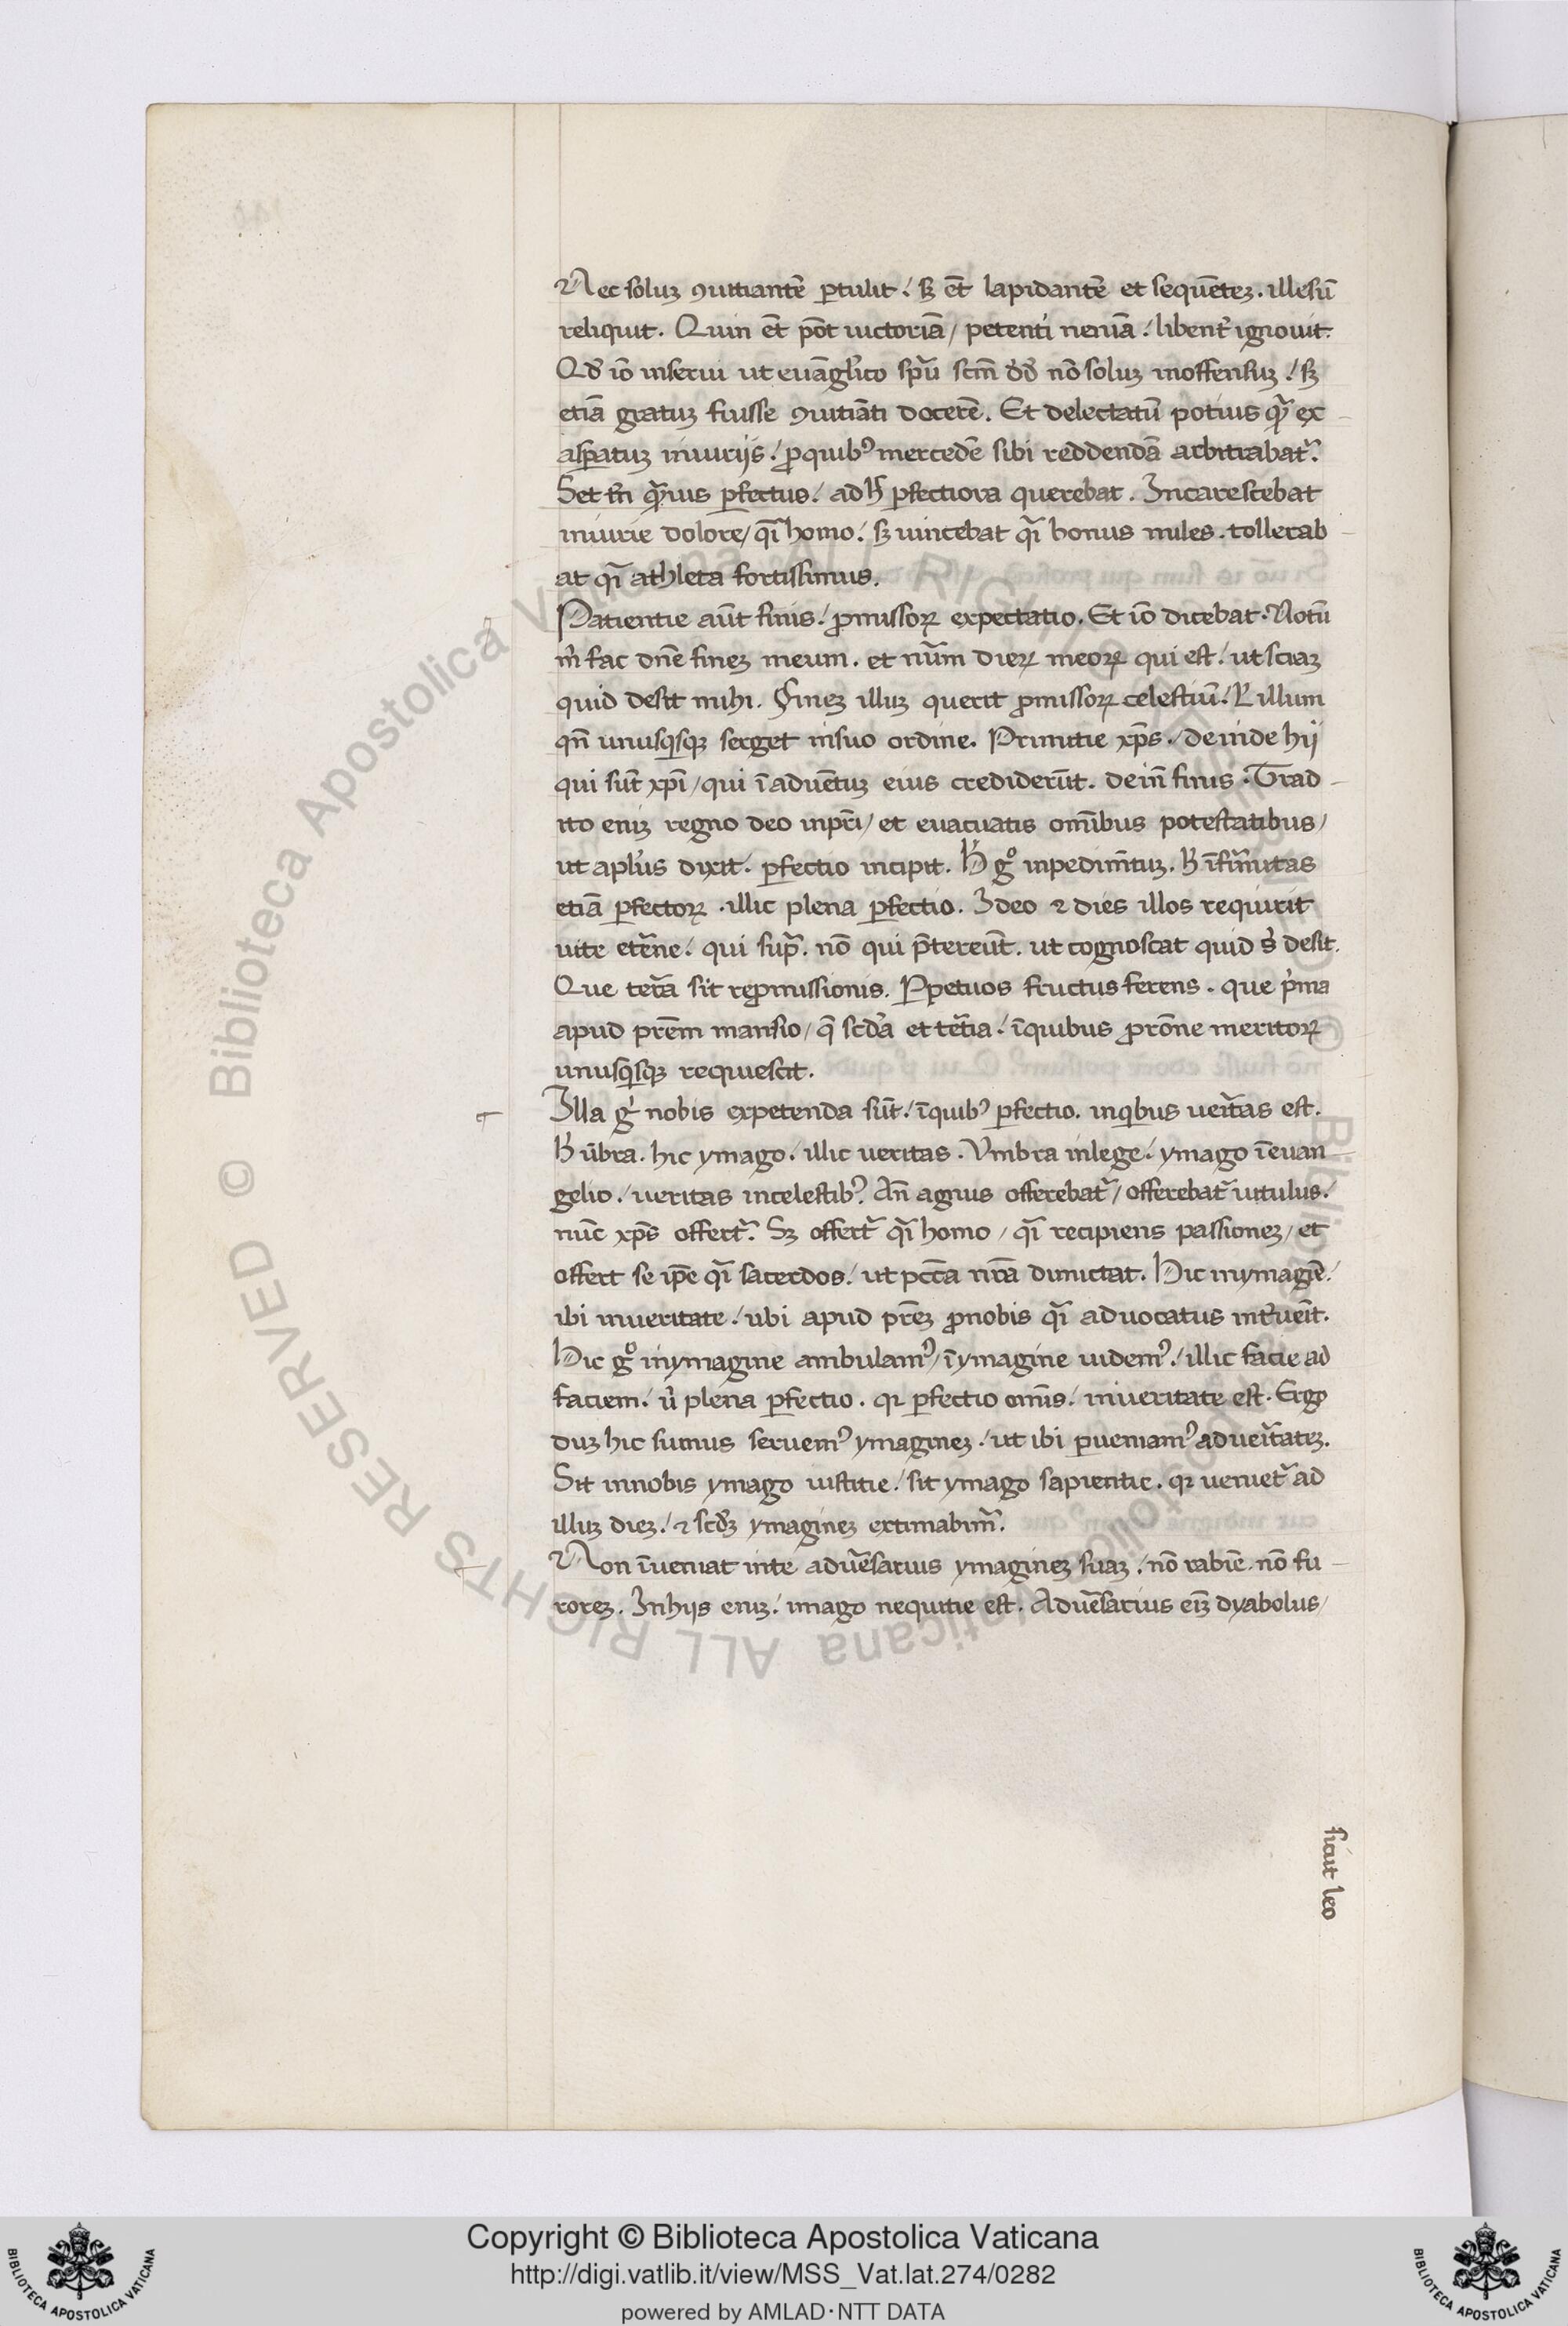 Nec soluꝫ ꝯuitiantē ꝑtulit / sꝫ et̄ lapidantē et sequēteꝫ . illesū
reliquit . Quin et̄ pōt uictoriā / petenti ueniā / libent᷑ ignouit .
Qđ iō inserui ut euāgl̓ico sp̄u sc̄m dd̄ nō soluꝫ inoffensuꝫ / sꝫ
etiā gratuꝫ fuisse ꝯuitiāti docerē . Et delectatū potius qᷓ ex
asꝑatuꝫ iniurijs / ꝓquibꝰ mercedē sibi reddendā arbitrabat᷑ .
Set tn̄ qᷓuis ꝑfectus / adh̄ ꝑfectiora querebat . Incarescebat
iniurie dolore / qᷓi homo / sꝫ uincebat qᷓi bonus miles . tollerab
at qᷓi athleta fortissimus .
Patientie aūt finis / ꝓmissoꝝ expectatio . Et iō dicebat . Notū
m̓ fac dn̄e fineꝫ meum . et nūm dieꝝ meoꝝ qui est / ut sciaꝫ
quid desit mihi . Fineꝫ illuꝫ querit ꝓmissoꝝ celestiū / ꝉ illum
qn̄ unusqisqꝫ serget insuo ordine . Primitie xp̄s / deinde hij
qui sūt xp̄i / qui ī aduētuꝫ eius crediderūt . dein̄ finis . Trad
ito eniꝫ regno deo inpr̄i / et euacuatis omībus potestatibus /
ut apl̓us dixit . ꝑfectio incipit . H̄ gͦ inpedim̄tuꝫ . h̄ īfirmitas
etiā ꝑfectoꝝ . illic plena ꝑfectio . Ideo ⁊ dies illos requirit
uite et̄ne / qui supᷓ . nō qui p̄tereūt . ut cognoscat quid s̓ desit .
Que terrā sit reꝓmissionis . Ꝑpetuos fructus ferens . que p̓ma
apud pr̄em mansio / q̄ scd̓a et tētia / īquibus ꝓrōne meritoꝝ
unusqisqꝫ requiescit .
Illa g̓ nobis expetenda sūt / īquibꝰ ꝑfectio . inqibus ueītas est .
H̄ ūbra . hic ymago / illic ueritas . Vmbra inlege / ymago ī euan
gelio / ueritas incelestibꝰ . An̄ agnus offerebat᷑ / offerebat᷑ uitulus /
nūc xp̄s offert᷑ . Sꝫ offert᷑ qᷓi homo / qᷓi recipiens passioneꝫ / et
offert se ip̄e qᷓi sacerdos / ut pcc̄a nr̄a dimictat . Hic inymagīe /
ibi inueritate / ubi apud pr̄eꝫ ꝓnobis qᷓi aduocatus int᷑ueīt .
Hic gͦ inymagine ambulamꝰ / īymagine uidemꝰ / illic facie ad
faciem / u̓ plena ꝑfectio . qꝛ ꝑfectio omīs / inueritate est . Ergo
duꝫ hic sumus seruemꝰ ymagineꝫ / ut ibi ꝑueniamꝰ adueītateꝫ .
Sit innobis ymago iustitie / sit ymago sapientie . qꝛ ueniet᷑ ad
illuꝫ dieꝫ / ⁊ scd̓ꝫ ymagineꝫ extimabim᷑ .
Non īueniat inte adūesarius ymagineꝫ suaꝫ / nō rabiē . nō fu
roreꝫ . Inhijs eniꝫ / imago nequitie est . Adūesarius eīꝫ dyabolus /
sicut leo
© Biblioteca Apostolica Vaticana ALL RIGHTS RESERVED
Copyright © Biblioteca Apostolica Vaticana
http://digi.vatlib.it/view/MSS_Vat.lat.274/0282
powered by AMLAD·NTT DATA
BIBLIOTECA APOSTOLICA VATICANA
BIBLIOTECA APOSTOLICA VATICANA